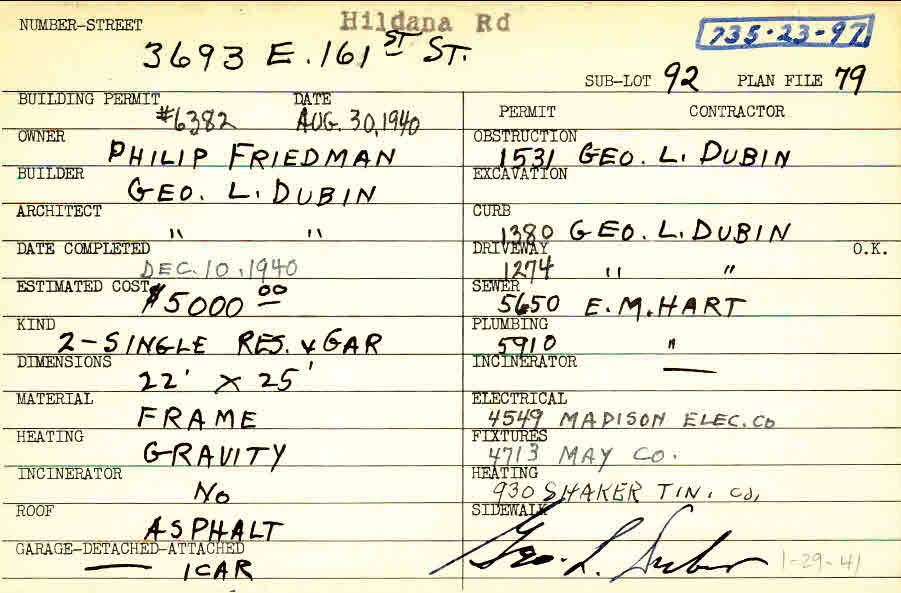 Hildana Rd
NUMBER-STREET 3693 E. 161 ST ST. 735-23-97
SUB-LOT 92 PLAN FILE 79
BUILDING PERMIT #6382 DATE AUG. 30, 1940
OWNER PHILIP FRIEDMAN
BUILDER GEO. L. DUBIN
ARCHITECT " "
DATE COMPLETED DEC. 10, 1940
ESTIMATED COST $5000 00
KIND 2-SINGLE RES. & GAR
DIMENSIONS 22' X 25'
MATERIAL FRAME
HEATING GRAVITY
INCINERATOR NO
ROOF ASPHALT
GARAGE-DETACHED-ATTACHED — 1CAR
PERMIT CONTRACTOR
OBSTRUCTION 1531 GEO. L. DUBIN
EXCAVATION
CURB 1380 GEO. L. DUBIN
DRIVEWAY 1274 " " O.K.
SEWER 5650 E. M. HART
PLUMBING 5910 "
INCINERATOR —
ELECTRICAL 4549 MADISON ELEC. CO
FIXTURES 4713 MAY CO.
HEATING 930 SHAKER TIN. CO,
SIDEWALK Geo. L. Dubin 1-29-41